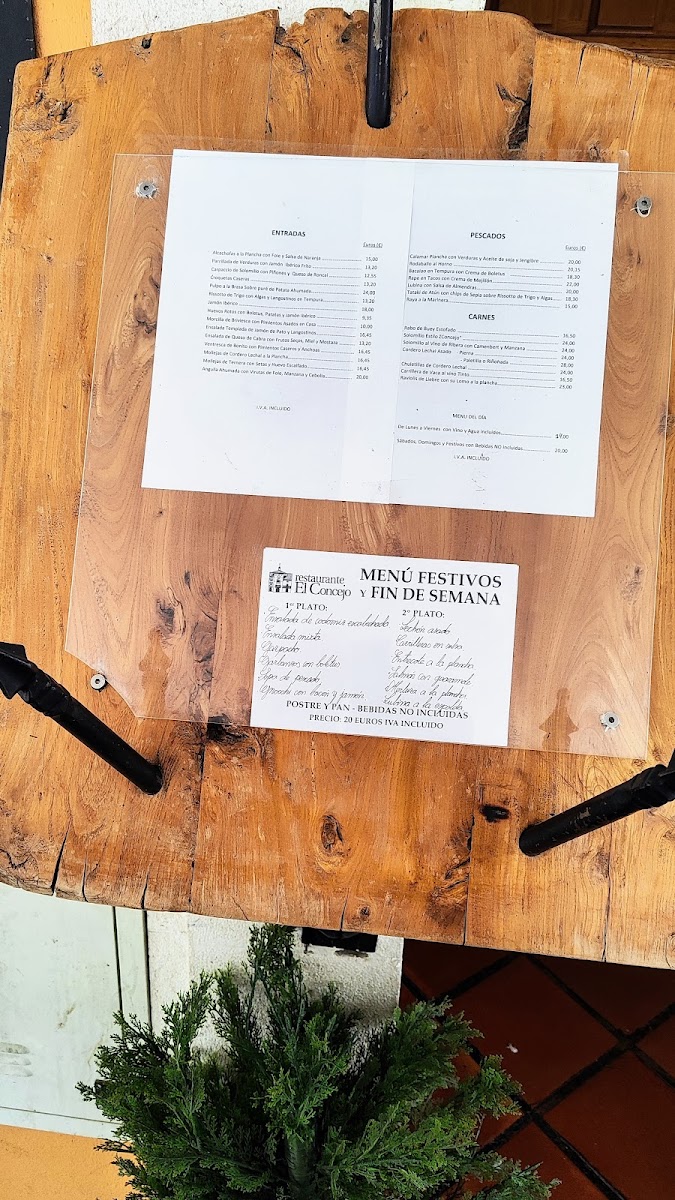 ENTRADAS
Euros (€)
Alcachofas a la Plancha con Foie y Salsa de Naranja 15,00
Parrillada de Verduras con Jamón Ibérico Frito 13,20
Carpaccio de Solomillo con Piñones y Queso de Roncal 12,55
Croquetas Caseras 13,20
Pulpo a la Brasa Sobre puré de Patata Ahumado 24,00
Risotto de Trigo con Algas y Langostinos en Tempura 13,20
Jamón Ibérico 18,00
Huevos Rotos con Boletus, Patatas y Jamón Ibérico 9,35
Morcilla de Briviesca con Pimientos Asados en Casa 10,00
Ensalada Templada de Jamón de Pato y Langostinos 16,45
Ensalada de Queso de Cabra con Frutos Secos, Miel y Mostaza 13,20
Ventresca de Bonito con Pimientos Caseros y Anchoas 16,45
Mollejas de Cordero Lechal a la Plancha 16,45
Mollejas de Ternera con Setas y Huevo Escalfado 16,45
Anguila Ahumada con Virutas de Foie, Manzana y Cebolla 20,00
I.V.A. INCLUIDO
PESCADOS
Euros (€)
Calamar Plancha con Verduras y Aceite de soja y Jengibre 20,00
Rodaballo al Horno 20,35
Bacalao en Tempura con Crema de Boletus 18,30
Rape en Tacos con Crema de Marisco 22,00
Lubina con Salsa de Almendras 20,00
Tataki de Atún con chips de Sepia sobre Risotto de Trigo y Algas 18,30
Raya a la Marinera 15,00
CARNES
Rabo de Buey Estofado 16,50
Solomillo Estilo "Concejo" 24,00
Solomillo al vino de Ribera con Camembert y Manzana 24,00
Cordero Lechal Asado Pierna 24,00
Paletilla o Riñonada 24,00
Chuletillas de Cordero Lechal 18,00
Carrillera de Vaca al vino Tinto 16,50
Raviolis de Liebre con su Lomo a la plancha 23,00
MENU DEL DÍA
De Lunes a Viernes con Vino y Agua incluidos 19,00
Sábados, Domingos y Festivos con Bebidas NO Incluidas 20,00
I.V.A. INCLUIDO
restaurante El Concejo
MENÚ FESTIVOS Y FIN DE SEMANA
1º PLATO:
Ensalada de codorniz escabechada
Ensalada mixta
Gazpacho
Garbanzos con boletus
Sopa de pescado
Gnocchi con bacon y jamón
2º PLATO:
Lechón asado
Carrilleras en salsa
Entrecote a la plancha
Salmón con guacamole
a la plancha
Lubina a la espalda
POSTRE Y PAN - BEBIDAS NO INCLUIDAS
PRECIO: 20 EUROS IVA INCLUIDO